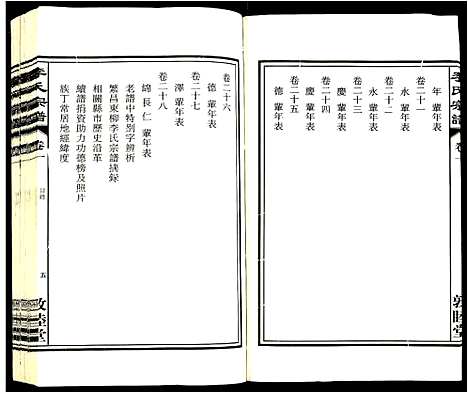 李氏宗譜
卷一
敦睦堂
年 輩年表
卷二十一
永 輩年表
卷二十二
永 輩年表
卷二十三
慶 輩年表
卷二十四
慶 輩年表
卷二十五
德 輩年表
卷二十六
德 輩年表
卷二十七
澤 輩年表
卷二十八
綿 長 仁 輩年表
老譜中特别字辨析
繁昌東柳李氏宗譜摘録
相關縣市歷史沿革
續譜捐資助力功德榜及照片
族丁常居地經緯度
李氏宗譜
卷一
目録
五
敦睦堂